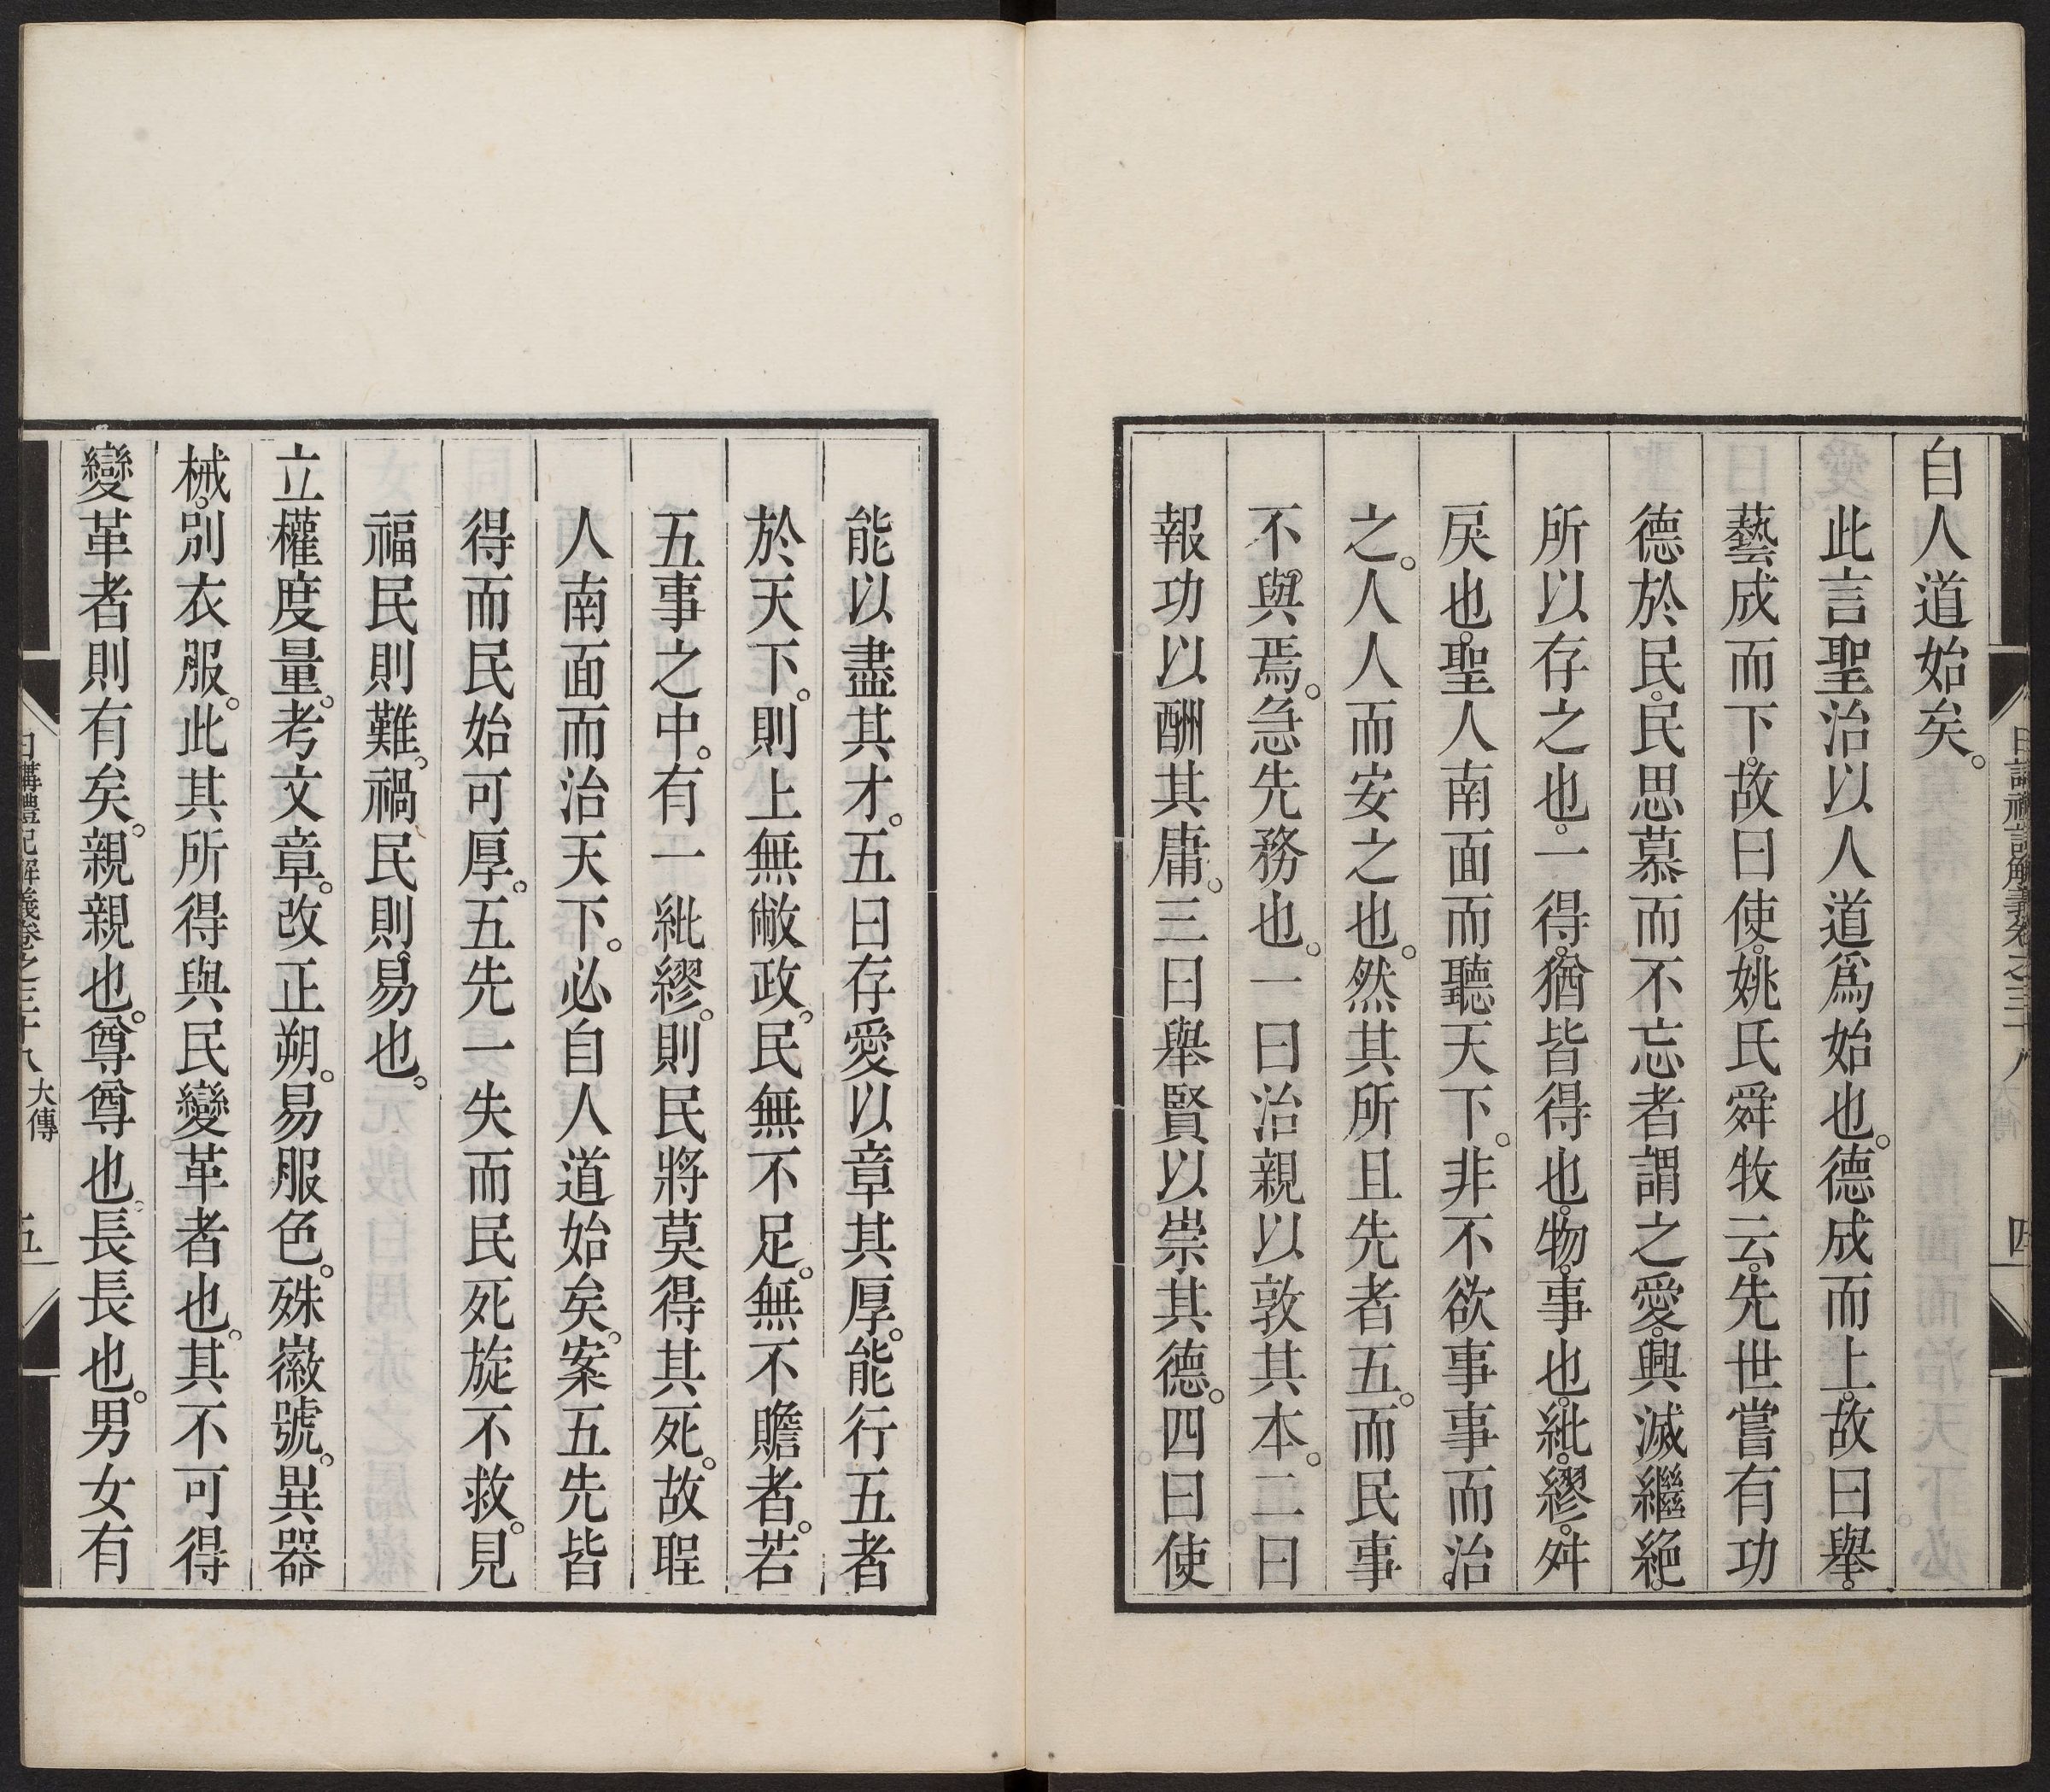 自人道始矣。
此言聖治以人道爲始也。德成而上。故曰舉。
藝成而下。故曰使。姚氏舜牧云。先世嘗有功
德於民。民思慕而不忘者謂之愛。興滅繼絕。
所以存之也。一得。猶皆得也。物。事也。紕。繆。舛
戾也。聖人南面而聽天下。非不欲事事而治
之。人人而安之也。然其所且先者五。而民事
不與焉。急先務也。一曰治親以敦其本。二曰
報功以酬其庸。三曰舉賢以崇其德。四曰使
日講禮記解義卷之三十八 大傳 四
能以盡其才。五曰存愛以章其厚。能行五者
於天下。則上無敝政。民無不足。無不贍者。若
五事之中。有一紕繆。則民將莫得其死。故聖
人南面而治天下。必自人道始矣。案五先皆
得而民始可厚。五先一失而民死旋不救。見
福民則難。禍民則易也。
立權度量。考文章。改正朔。易服色。殊徽號。異器
械。別衣服。此其所得與民變革者也。其不可得
變革者則有矣。親親也。尊尊也。長長也。男女有
日講禮記解義卷之三十八 大傳 五